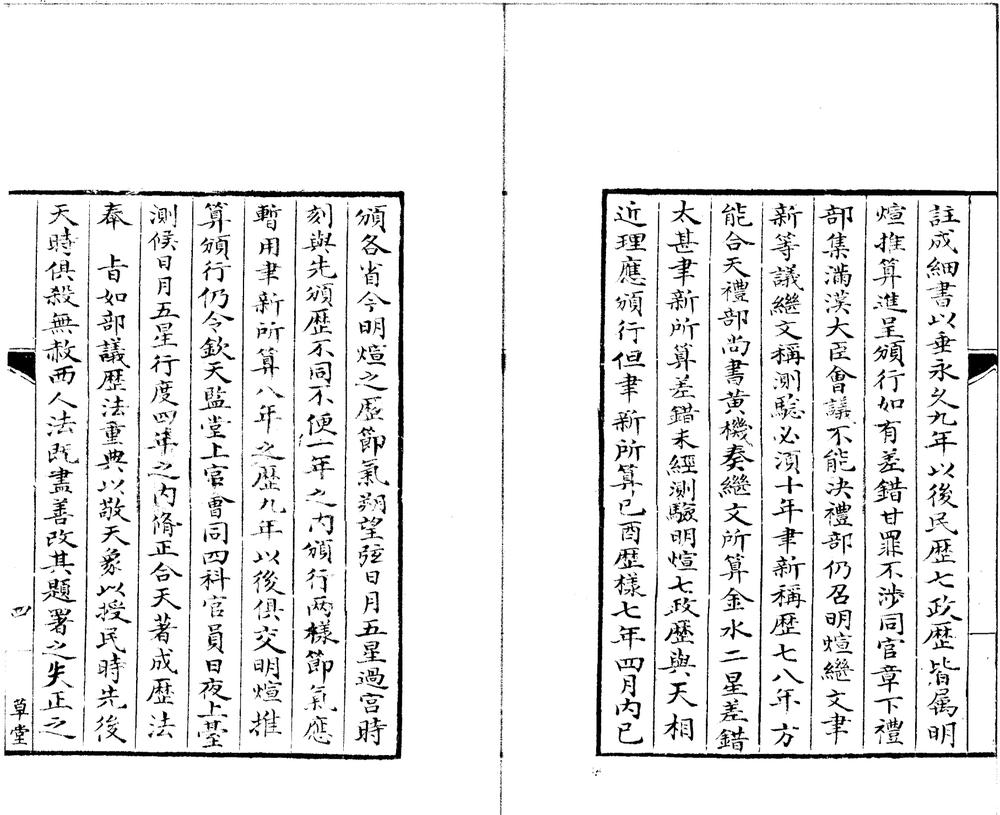 註成細書以垂永久九年以後民歷七政歷皆属明
煊推算進呈頒行如有差錯甘罪不涉同官章下禮
部集滿漢大臣會議不能決禮部仍召明煊繼文聿
新等議繼文稱測騐必須十年聿新稱歷七八年方
能合天禮部尚書黄機奏繼文所算金水二星差錯
太甚聿新所算差錯未經測驗明煊七政歷與天相
近理應頒行但聿新所算已酉歷樣七年四月内已
頒各省今明煊之歷節氣朔望弦日月五星過宮時
刻與先頒歷不同不便一年之内頒行兩樣節氣應
暫用聿新所算八年之歷九年以後俱交明煊推
算頒行仍令欽天監堂上官會同四科官員日夜上臺
測候日月五星行度四年之内脩正合天著成歷法
奉　㫖如部議歷法重典以敬天象以授民時先後
天時俱殺無赦西人法既盡善改其題署之失正之
四
草堂